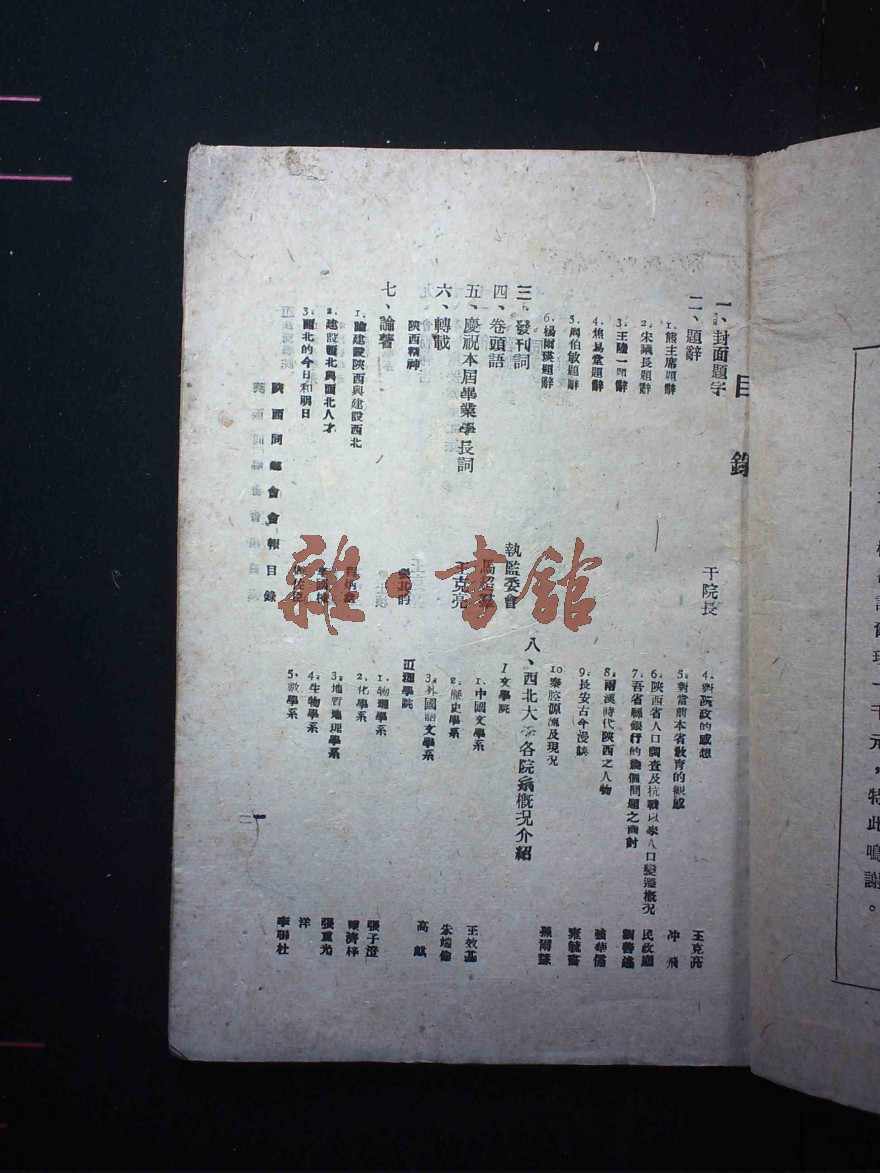 目錄
一、封面題字 于院長
二、題辭
1、熊主席題辭
2、宋議長題辭
3、王陸一題辭
4、焦易堂題辭
5、周伯敏題辭
6、楊爾瑛題辭
三、發刊詞 執監委會
四、卷頭語 馬超羣
五、慶祝本屆畢業學長詞 王克亮
六、轉載
陝西精神
七、論著
1、論建設陝西與建設西北
2、建設西北與西北人才
3、西北的今日和明日
陝西同鄉會會報目錄
4、對陝政的感想 王克亮
5、對當前本省教育的觀感 冲飛
6、陝西省人口調查及抗戰以來人口變遷概況 民政廳
7、吾省縣銀行的幾個問題之商討
8、兩漢時代陝西之人物
9、長安古今漫談
10、秦腔源流及現況
八、西北大學各院系概況介紹
I文學院
1、中國文學系 王效基
2、歷史學系 朱端倫
3、外國語文學系 高
II理學院
1、物理學系 張子澄
2、化學系
3、地質地理學系 張重光
4、生物學系 洋
5、數學系 李聯社
一
雜·書館
千元，特此鳴謝。